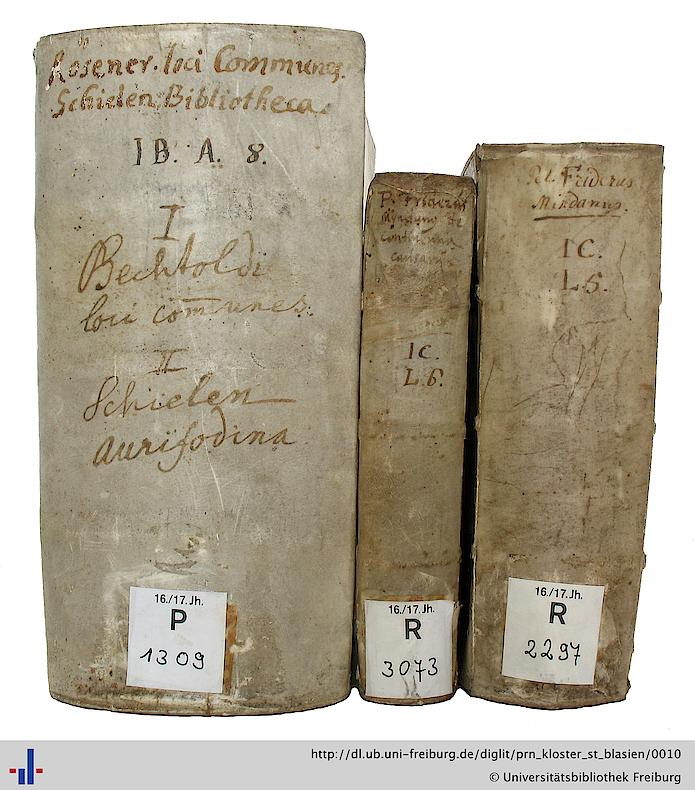 Rosener. loci Communes.
Schielen Bibliotheca.
IB. A. 8.
I
Bechtoldi
loci com̄unes.
II
Schielen
Aurifodina
16./17.Jh.
P
1309
P. Friderus
Mindanus de
continentia
causarum
IC.
L.6.
16./17.Jh.
R
3073
Pet. Friderus
Mindanus.
IC.
L.5.
16./17.Jh.
R
2297
http://dl.ub.uni-freiburg.de/diglit/prn_kloster_st_blasien/0010
© Universitätsbibliothek Freiburg